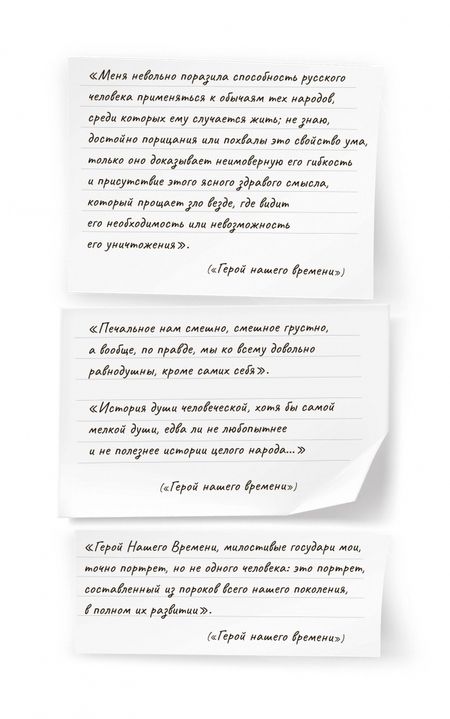 «Меня невольно поразила способность русского
человека применяться к обычаям тех народов,
среди которых ему случается жить; не знаю,
достойно порицания или похвалы это свойство ума,
только оно доказывает неимоверную его гибкость
и присутствие этого ясного здравого смысла,
который прощает зло везде, где видит
его необходимость или невозможность
его уничтожения».
(«Герой нашего времени»)
«Печальное нам смешно, смешное грустно,
а вообще, по правде, мы ко всему довольно
равнодушны, кроме самих себя».
«История души человеческой, хотя бы самой
мелкой души, едва ли не любопытнее
и не полезнее истории целого народа...»
(«Герой нашего времени»)
«Герой Нашего Времени, милостивые государи мои,
точно портрет, но не одного человека: это портрет,
составленный из пороков всего нашего поколения,
в полном их развитии».
(«Герой нашего времени»)